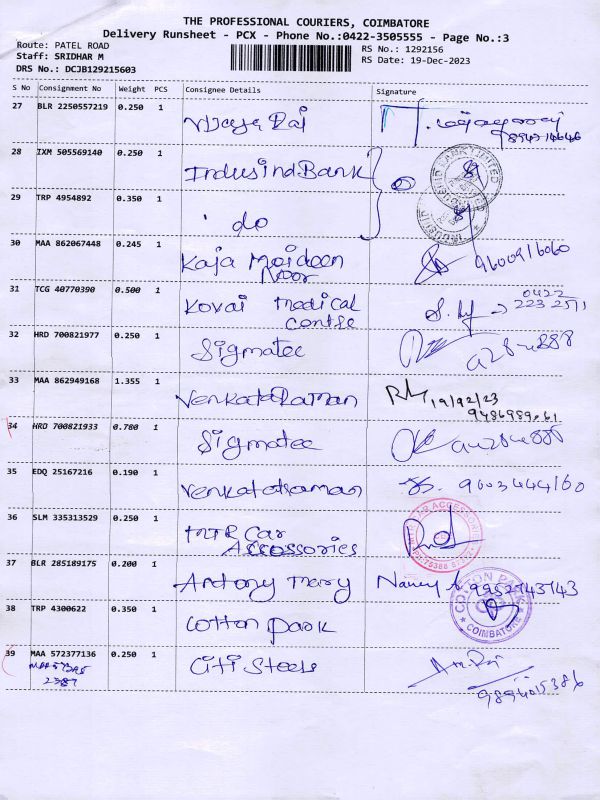 THE PROFESSIONAL COURIERS, COIMBATORE
Delivery Runsheet - PCX - Phone No.:0422-3505555 - Page No.:3
Route: PATEL ROAD
RS No.: 1292156
Staff: SRIDHAR M
RS Date: 19-Dec-2023
DRS No.: DCJB129215603
S No Consignment No Weight PCS Consignee Details Signature
27 BLR 2250557219 0.250 1 Vijaya Raj
28 IXM 505569140 0.250 1 IndusindBank
29 TRP 4954892 0.350 1 do
30 MAA 862067448 0.245 1 Kaja Maideen Noor 9600916060
31 TCG 40770390 0.500 1 Kovai Medical Centre 0422 223 2511
32 HRD 700821977 0.250 1 Sigmatec
33 MAA 862949168 1.355 1 Venkataraman
34 HRD 700821933 0.780 1 Sigmatec
35 EDQ 25167216 0.190 1 Venkataraman 9003444160
36 SLM 335313529 0.250 1 MTR Car Accossories
37 BLR 285189175 0.200 1 Antony Mary Nancy A. 9952743743
38 TRP 4300622 0.350 1 Cotton Park
COTTON PARK COIMBATORE
39 MAA 572377136 0.250 1 Citi Steels 9894015386